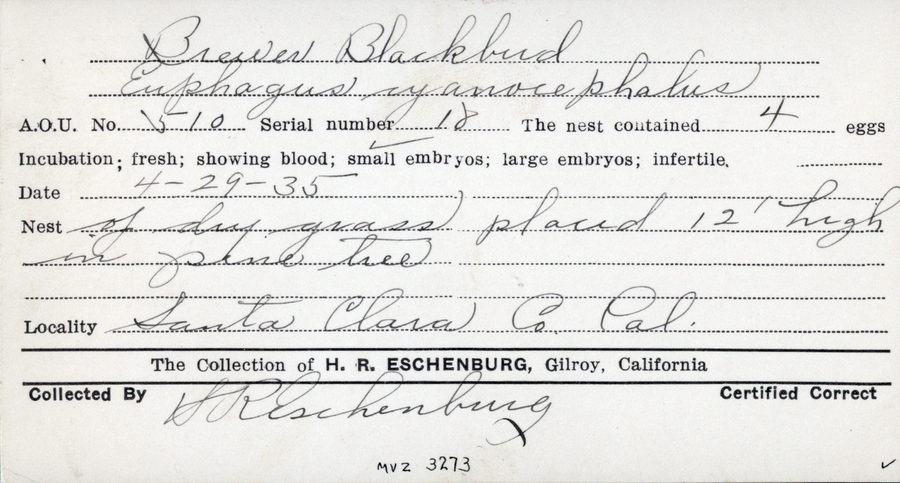 Brewer Blackbird
Euphagus cyanocephalus
A.O.U. No. 510 Serial number 18 The nest contained 4 eggs
Incubation; fresh; showing blood; small embryos; large embryos; infertile.
Date 4-29-35
Nest of dry grass placed 12' high
in pine tree
Locality Santa Clara Co. Cal.
The Collection of H. R. ESCHENBURG, Gilroy, California
Collected By HREschenburg Certified Correct
MVZ 3273